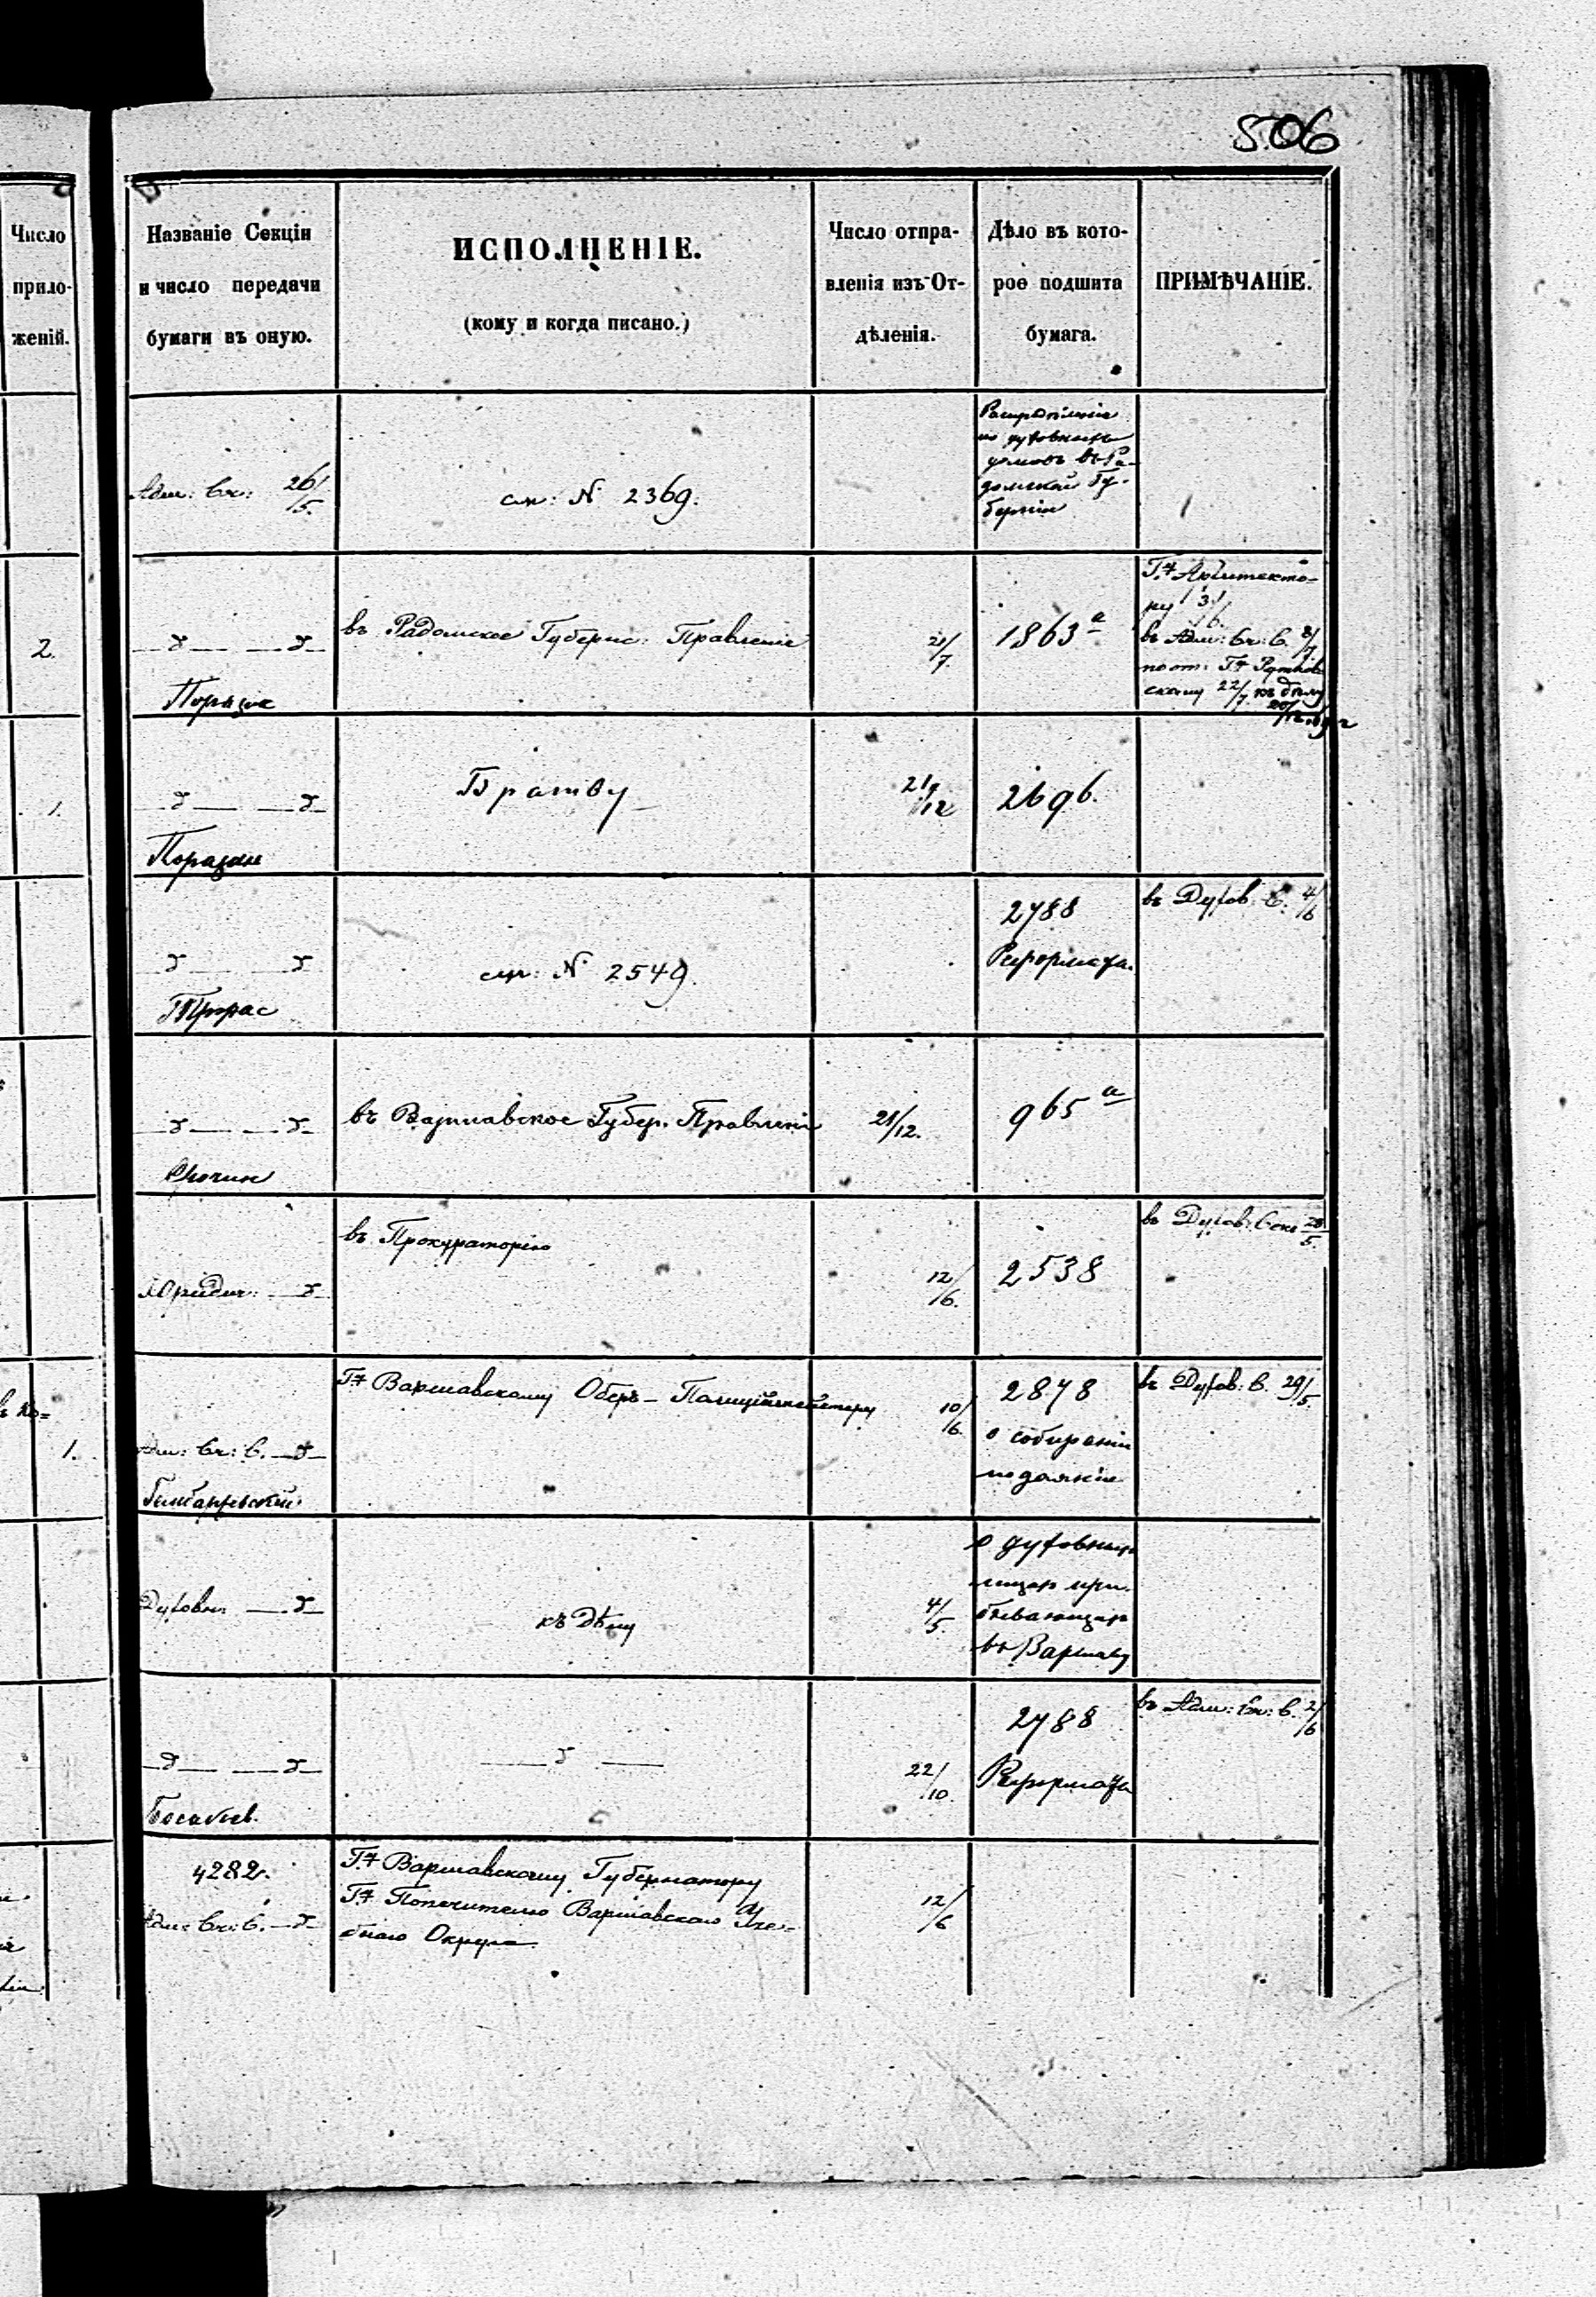 506
Число
прило-
женій.
Названіе Секціи
и число передачи
бумаги въ оную.
ИСПОЛНЕНІЕ.
(кому и когда писано.)
Число отпра-
вленія изъ От-
дѣленія.
Дѣло въ кото-
рое подшита
бумага.
ПРИМѢЧАНІЕ.
Адм: Ск: 26/5.
см: № 2369.
домской Гу-
берніи
2.
въ Радомское Губернс: Правленіе
21/7.
1863 а
Гну Архитекто-
ру 3/6.
въ Адм: Ск: С. 8/7
скому 22/7 къ дѣлу
1.
Братву
21/12
2696.
см: № 2549.
2788
Реформата.
въ Духов. С. 4/6
въ Варшавское Губер. Правленіе
21/12.
965 а
Юридич:
въ Прокураторію
12/6.
2538
въ Духов: Секц 28/5.
1.
Адм: Ск: С.
Гну Варшавскому Оберъ-Полиціймейстеру
10/6.
2878
о собираніи
подаянія
въ Духов: С. 29/5.
Духовн
къ Дѣлу
4/5.
о духовныхъ
лицахъ при-
бывающихъ
въ Варшаву
22/10.
2788
Реформата
въ Адм: Ск: С. 2/6
4282.
Адм: Ск: С.
Гну Варшавскому Губернатору
Гну Попечителю Варшавскаго Уче-
бнаго Округа
12/6